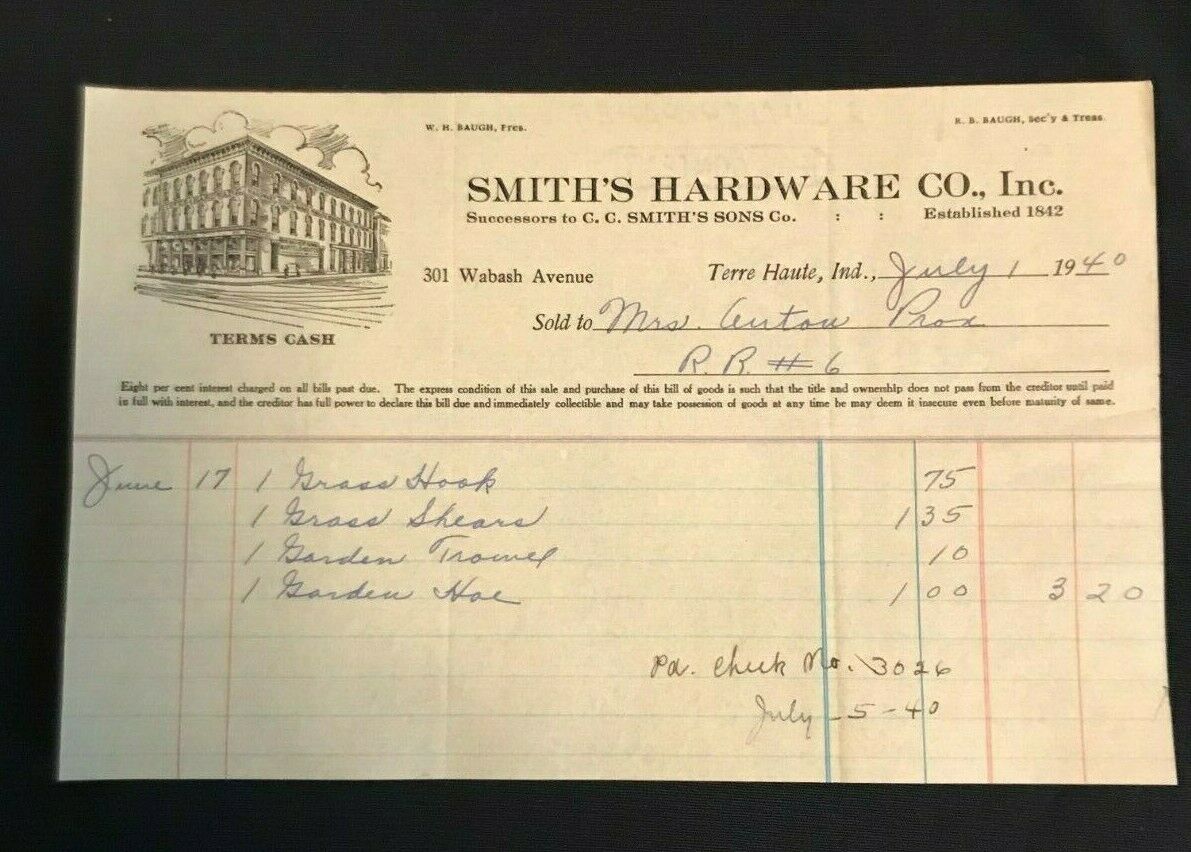 W. H. BAUGH, Pres.
R. B. BAUGH, Sec'y & Treas.
SMITH'S HARDWARE CO., Inc.
Successors to C. C. SMITH'S SONS Co. : : Established 1842
301 Wabash Avenue Terre Haute, Ind., July 1 1940
Sold to Mrs. Anton Prox
R. R. #6
TERMS CASH
Eight per cent interest charged on all bills past due. The express condition of this sale and purchase of this bill of goods is such that the title and ownership does not pass from the creditor until paid
in full with interest, and the creditor has full power to declare this bill due and immediately collectible and may take possession of goods at any time he may deem it insecure even before maturity of same.
June 17 1 Grass Hook 75
1 Grass Shears 1 35
1 Garden Trowel 10
1 Garden Hoe 1 00 3 20
Pd. Check No. 3026
July-5-40